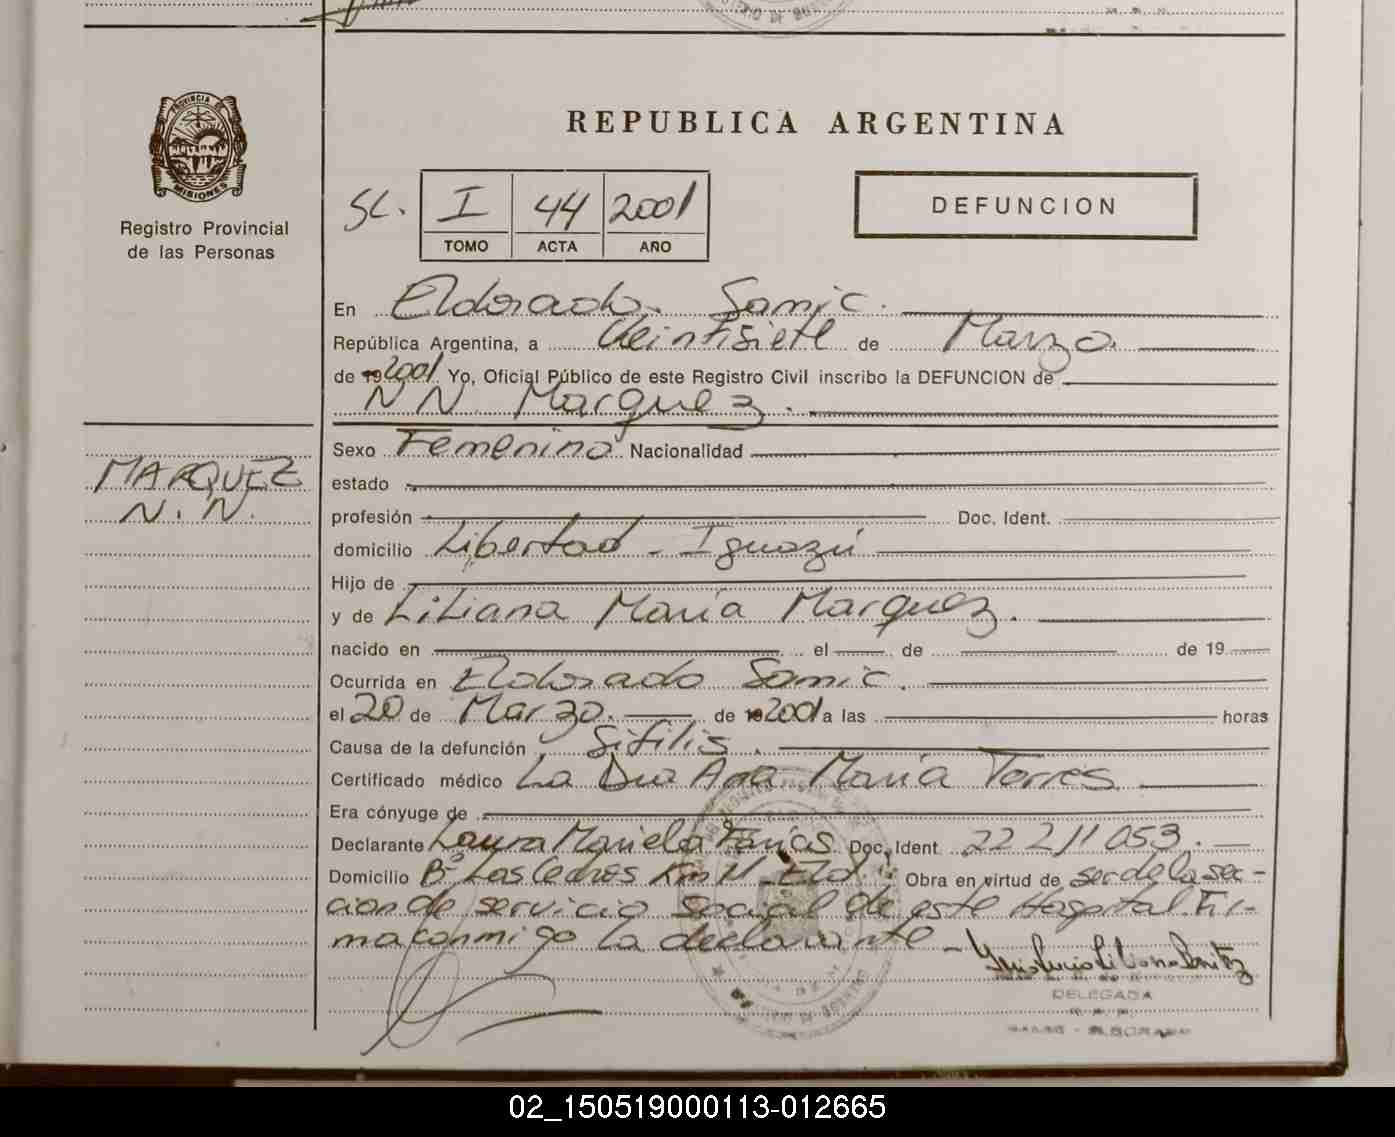 PROVINCIA DE
MISIONES
Registro Provincial
de las Personas
MARQUEZ
N. N.
REPUBLICA ARGENTINA
SC. I 44 2001
TOMO ACTA AÑO
DEFUNCION
En Eldorado. Samic.
República Argentina, a Veintisiete de Marzo.
de 19 2001 Yo, Oficial Público de este Registro Civil inscribo la DEFUNCION de
NN Marquez.
Sexo Femenino Nacionalidad
estado
profesión Doc. Ident.
domicilio Libertad - Iguazú
Hijo de
y de Liliana María Marquez.
nacido en el de de 19
Ocurrida en Eldorado Samic.
el 20 de Marzo. de 19 2001 a las horas
Causa de la defunción Sifilis.
Certificado médico La Dra Ana María Torres
Era cónyuge de
Declarante Laura Mariela Farias Doc. Ident. 22 211 053.
Domicilio Bº Los Cedros Km 11 - Eld. Obra en virtud de ser de la sec-
cion de servicio social de este Hospital. Fir-
ma conmigo la declarante -
DELEGADA
02_150519000113-012665